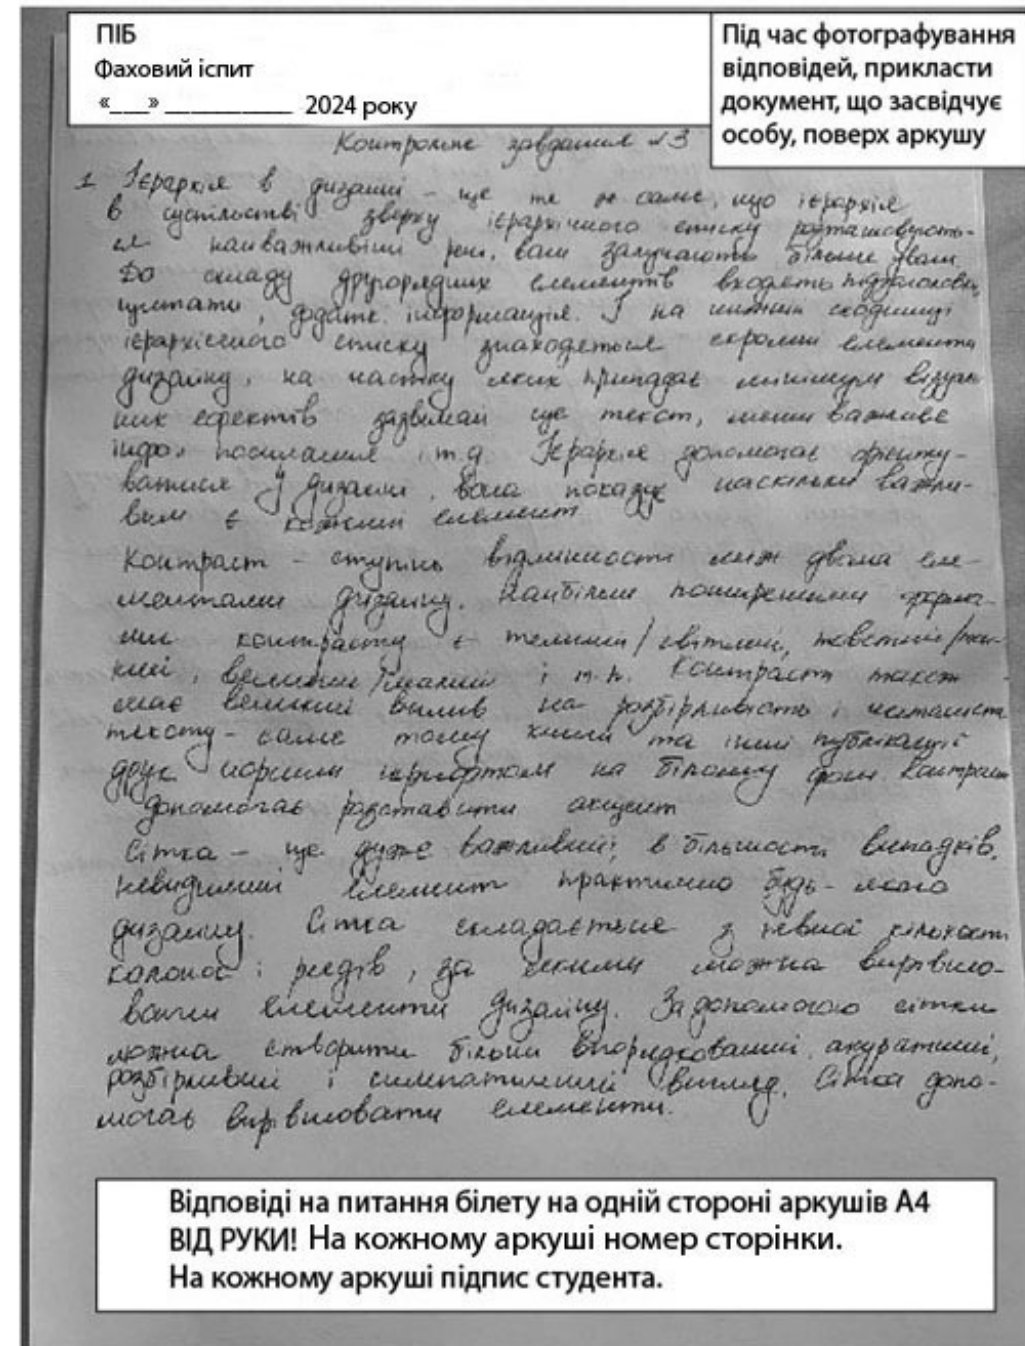 ПІБ
Фаховий іспит
«___» __________ 2024 року
Під час фотографування
відповідей, прикласти
документ, що засвідчує
особу, поверх аркушу
Контрольне завдання №3
1 Ієрархія в дизайні – це те ж саме, що ієрархія
в суспільстві зверху ієрархічного списку розташовують-
ся найважливіші речі, вони залучають більше уваги
До складу другорядних елементів входять підзаголовки,
цитати, додатк. інформація. І на нижній сходинці
ієрархічного списку знаходяться скромні елементи
дизайну, на частку яких припадає мінімум візуаль
них ефектів зазвичай це текст, менш важливе
інфо, посилання і т.д Ієрархія допомагає орієнту-
ватися у дизайні, вона показує наскільки важли-
вим є кожний елемент
Контраст – ступінь відмінності між двома еле-
ментами дизайну. Найбільш поширеними форма-
ми контрасту є темний/світлий, товстий/тон-
кий, великий/малий і т.п. Контраст також
має великий вплив на розбірливість і читаність
тексту – саме тому книги та інші публікації
друк чорним шрифтом на білому фоні. Контраст
допомагає розставити акцент
Сітка – це дуже важливий, в більшості випадків,
невидимий елемент практично будь-якого
дизайну. Сітка складається з певної кількості
колонок і рядів, за якими можна вирівню-
вати елементи дизайну. За допомогою сітки
можна створити більш впорядкований, акуратний,
розбірливий і симпатичний вигляд. Сітка допо-
магає вирівнювати елементи.
Відповіді на питання білету на одній стороні аркушів А4
ВІД РУКИ! На кожному аркуші номер сторінки.
На кожному аркуші підпис студента.